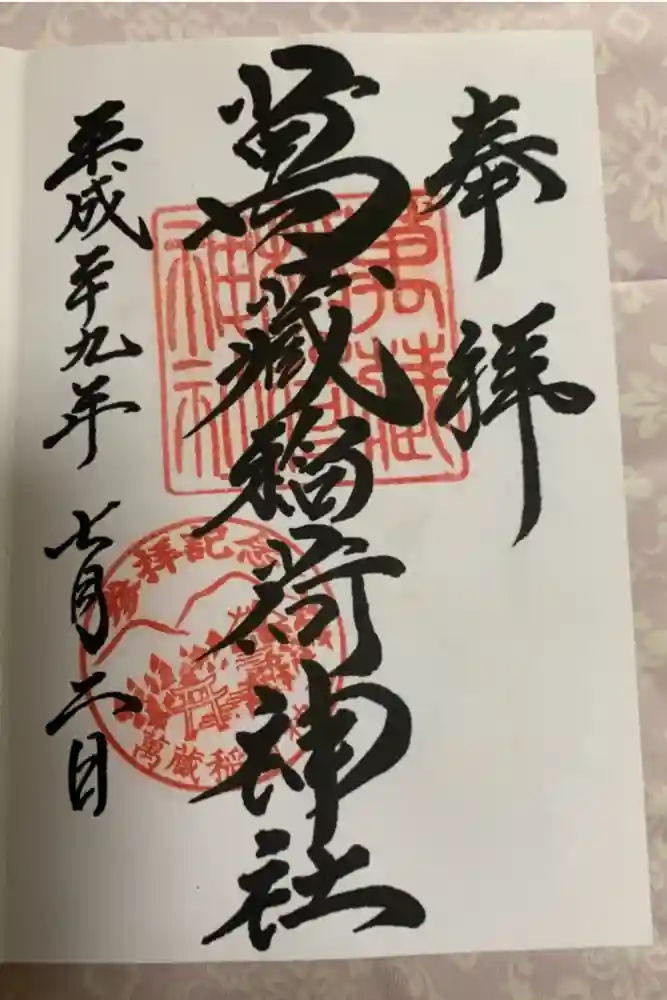 奉拝
萬蔵稲荷神社
平成二十九年七月二日
萬蔵稲荷神社
参拝記念
萬蔵稲